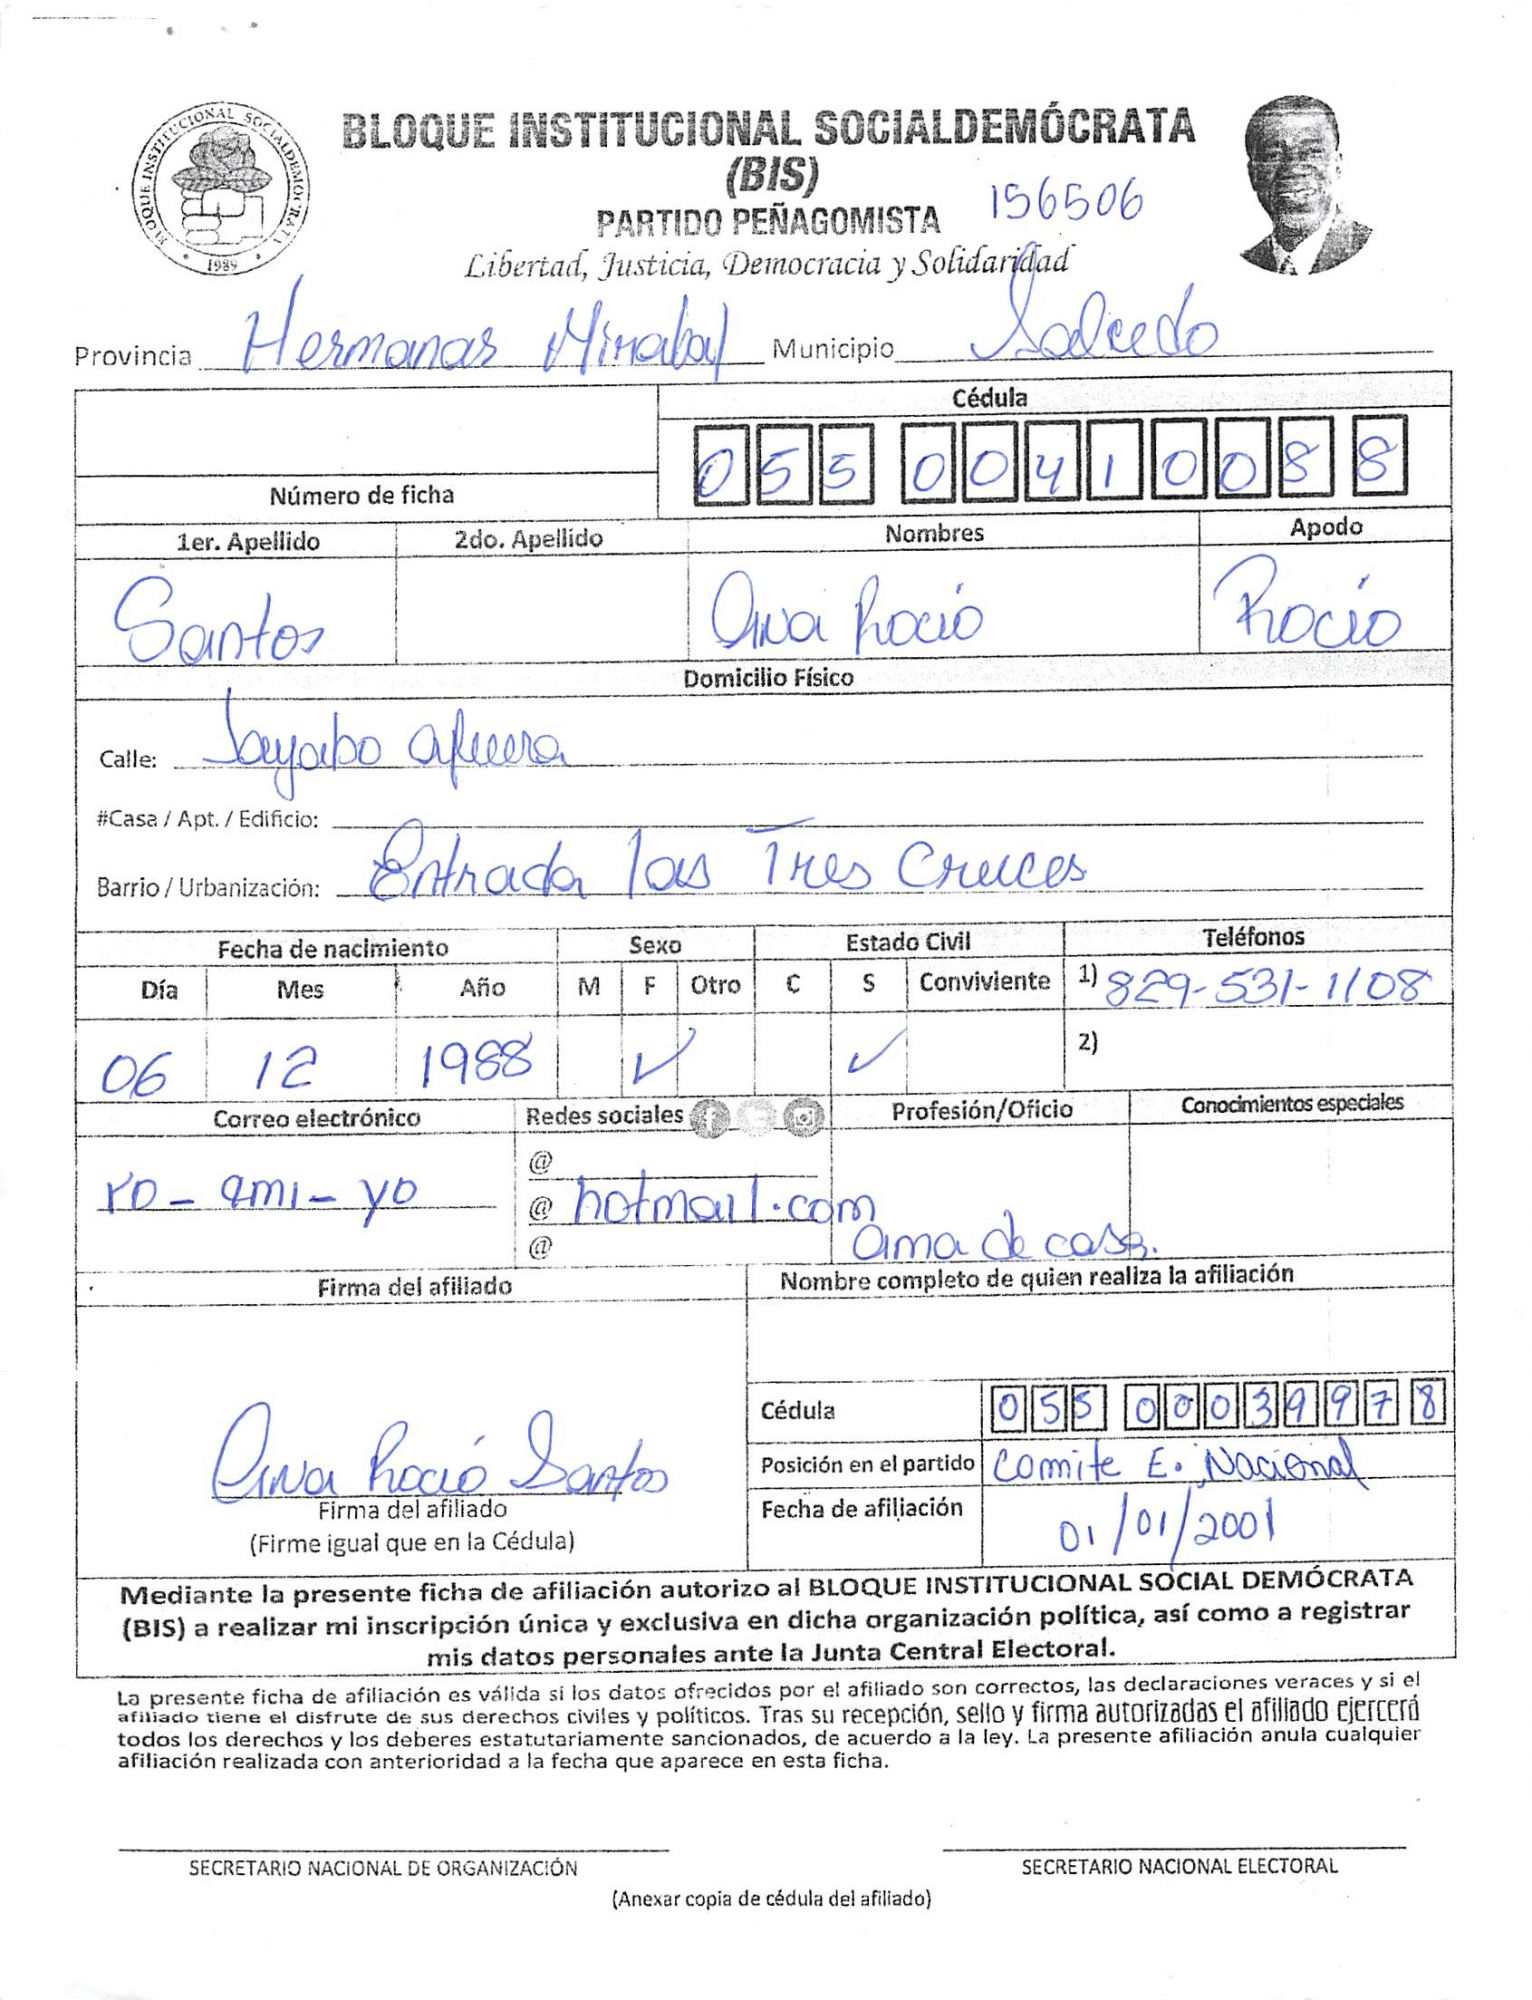 BLOQUE INSTITUCIONAL SOCIALDEMOCRATA 1989
BLOQUE INSTITUCIONAL SOCIALDEMÓCRATA
(BIS)
PARTIDO PEÑAGOMISTA 156506
Libertad, Justicia, Democracia y Solidaridad
Provincia Hermanas Mirabal Municipio Salcedo
Cédula
055 0041008 8
Número de ficha
1er. Apellido 2do. Apellido Nombres Apodo
Santos Ana Roció Rocio
Domicilio Físico
Calle: Jayabo afuera
#Casa / Apt. / Edificio:
Barrio / Urbanización: Entrada las Tres Cruces
Fecha de nacimiento Sexo Estado Civil Teléfonos
Día Mes Año M F Otro C S Conviviente 1) 829-531-1108
06 12 1988 ✓ ✓ 2)
Correo electrónico Redes sociales Profesión/Oficio Conocimientos especiales
@
ro-ami-yo @ hotmail.com
@ ama de casa.
Firma del afiliado Nombre completo de quien realiza la afiliación
Cédula 055 0003997 8
Posición en el partido Comite E. Nacional
Ana Roció Santos
Firma del afiliado
(Firme igual que en la Cédula)
Fecha de afiliación 01/01/2001
Mediante la presente ficha de afiliación autorizo al BLOQUE INSTITUCIONAL SOCIAL DEMÓCRATA
(BIS) a realizar mi inscripción única y exclusiva en dicha organización política, así como a registrar
mis datos personales ante la Junta Central Electoral.
La presente ficha de afiliación es válida si los datos ofrecidos por el afiliado son correctos, las declaraciones veraces y si el
afiliado tiene el disfrute de sus derechos civiles y políticos. Tras su recepción, sello y firma autorizadas el afiliado ejercerá
todos los derechos y los deberes estatutariamente sancionados, de acuerdo a la ley. La presente afiliación anula cualquier
afiliación realizada con anterioridad a la fecha que aparece en esta ficha.
SECRETARIO NACIONAL DE ORGANIZACIÓN SECRETARIO NACIONAL ELECTORAL
(Anexar copia de cédula del afiliado)